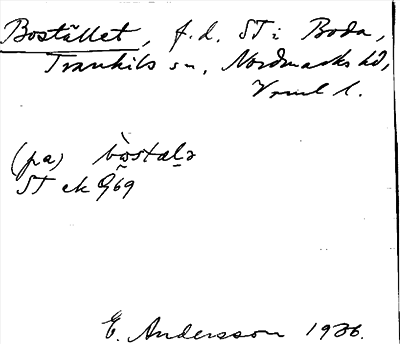 Bostället, f.d. ST i Boda,
Trankils sn, Nordmarks hd,
Vrml l.
(på) bòstalə
ST ek 969
E. Andersson 1936.